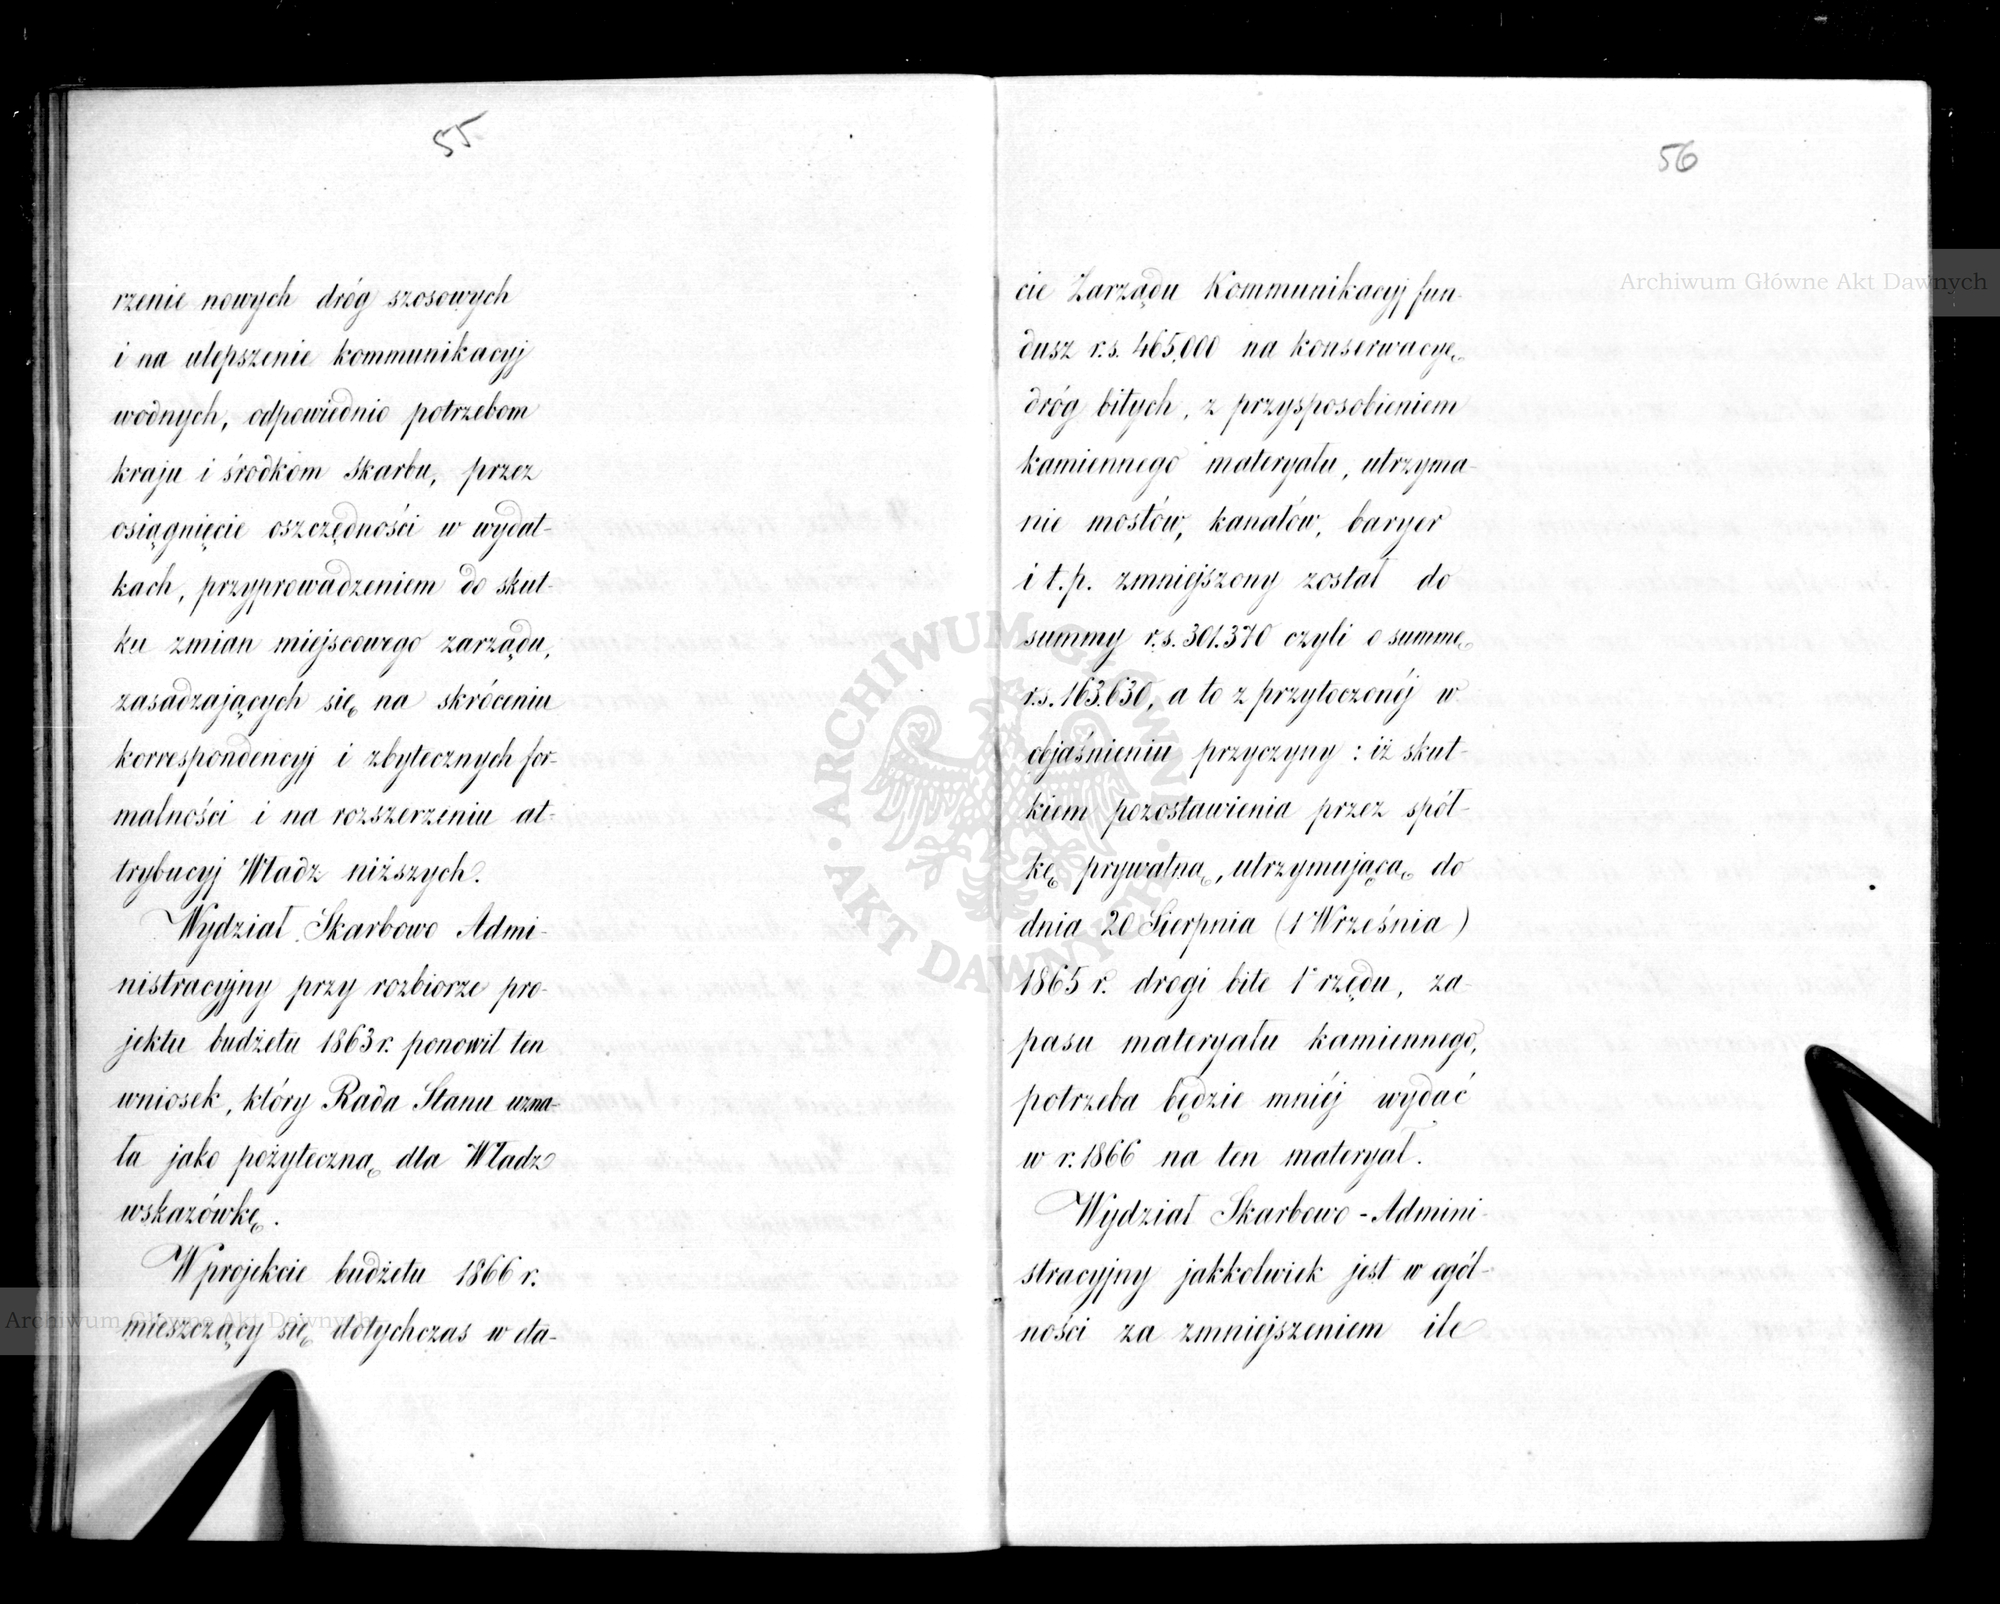 55
rzenie nowych dróg szosowych
i na ulepszenie kommunikacyj
wodnych, odpowiednio potrzebom
kraju i środkom Skarbu, przez
osiągnięcie oszczędności w wydat-
kach, przyprowadzeniem do skut-
ku zmian miejscowego zarządu,
zasadzających się na skróceniu
korrespondencyj i zbytecznych for-
malności i na rozszerzeniu at-
trybucyj Władz niższych.
Wydział Skarbowo Admi-
nistracyjny przy rozbiorze pro-
jektu budżetu 1863 r. ponowił ten
wniosek, który Rada Stanu uzna-
ła jako pożyteczną dla Władz
wskazówkę.
W projekcie budżetu 1866 r.
mieszczący się dotychczas w eta-
56
cie Zarządu Kommunikacyj fun-
dusz r.s. 465,000 na konserwacyę
dróg bitych, z przysposobieniem
kamiennego materyału, utrzyma-
nie mostów, kanałów, baryer
i t.p. zmniejszony został do
summy r.s. 301.370 czyli o summę
r.s. 163.630, a to z przytoczonéj w
objaśnieniu przyczyny: iż skut-
kiem pozostawienia przez spół-
kę prywatną, utrzymującą do
dnia 20 Sierpnia (1 Września)
1865 r. drogi bite 1° rzędu, za-
pasu materyału kamiennego,
potrzeba będzie mniéj wydać
w r. 1866 na ten materyał.
Wydział Skarbowo-Admini-
stracyjny jakkolwiek jest w ogól-
ności za zmniejszeniem ile
Archiwum Główne Akt Dawnych
Archiwum Główne Akt Dawnych
ARCHIWUM GŁÓWNE AKT DAWNYCH